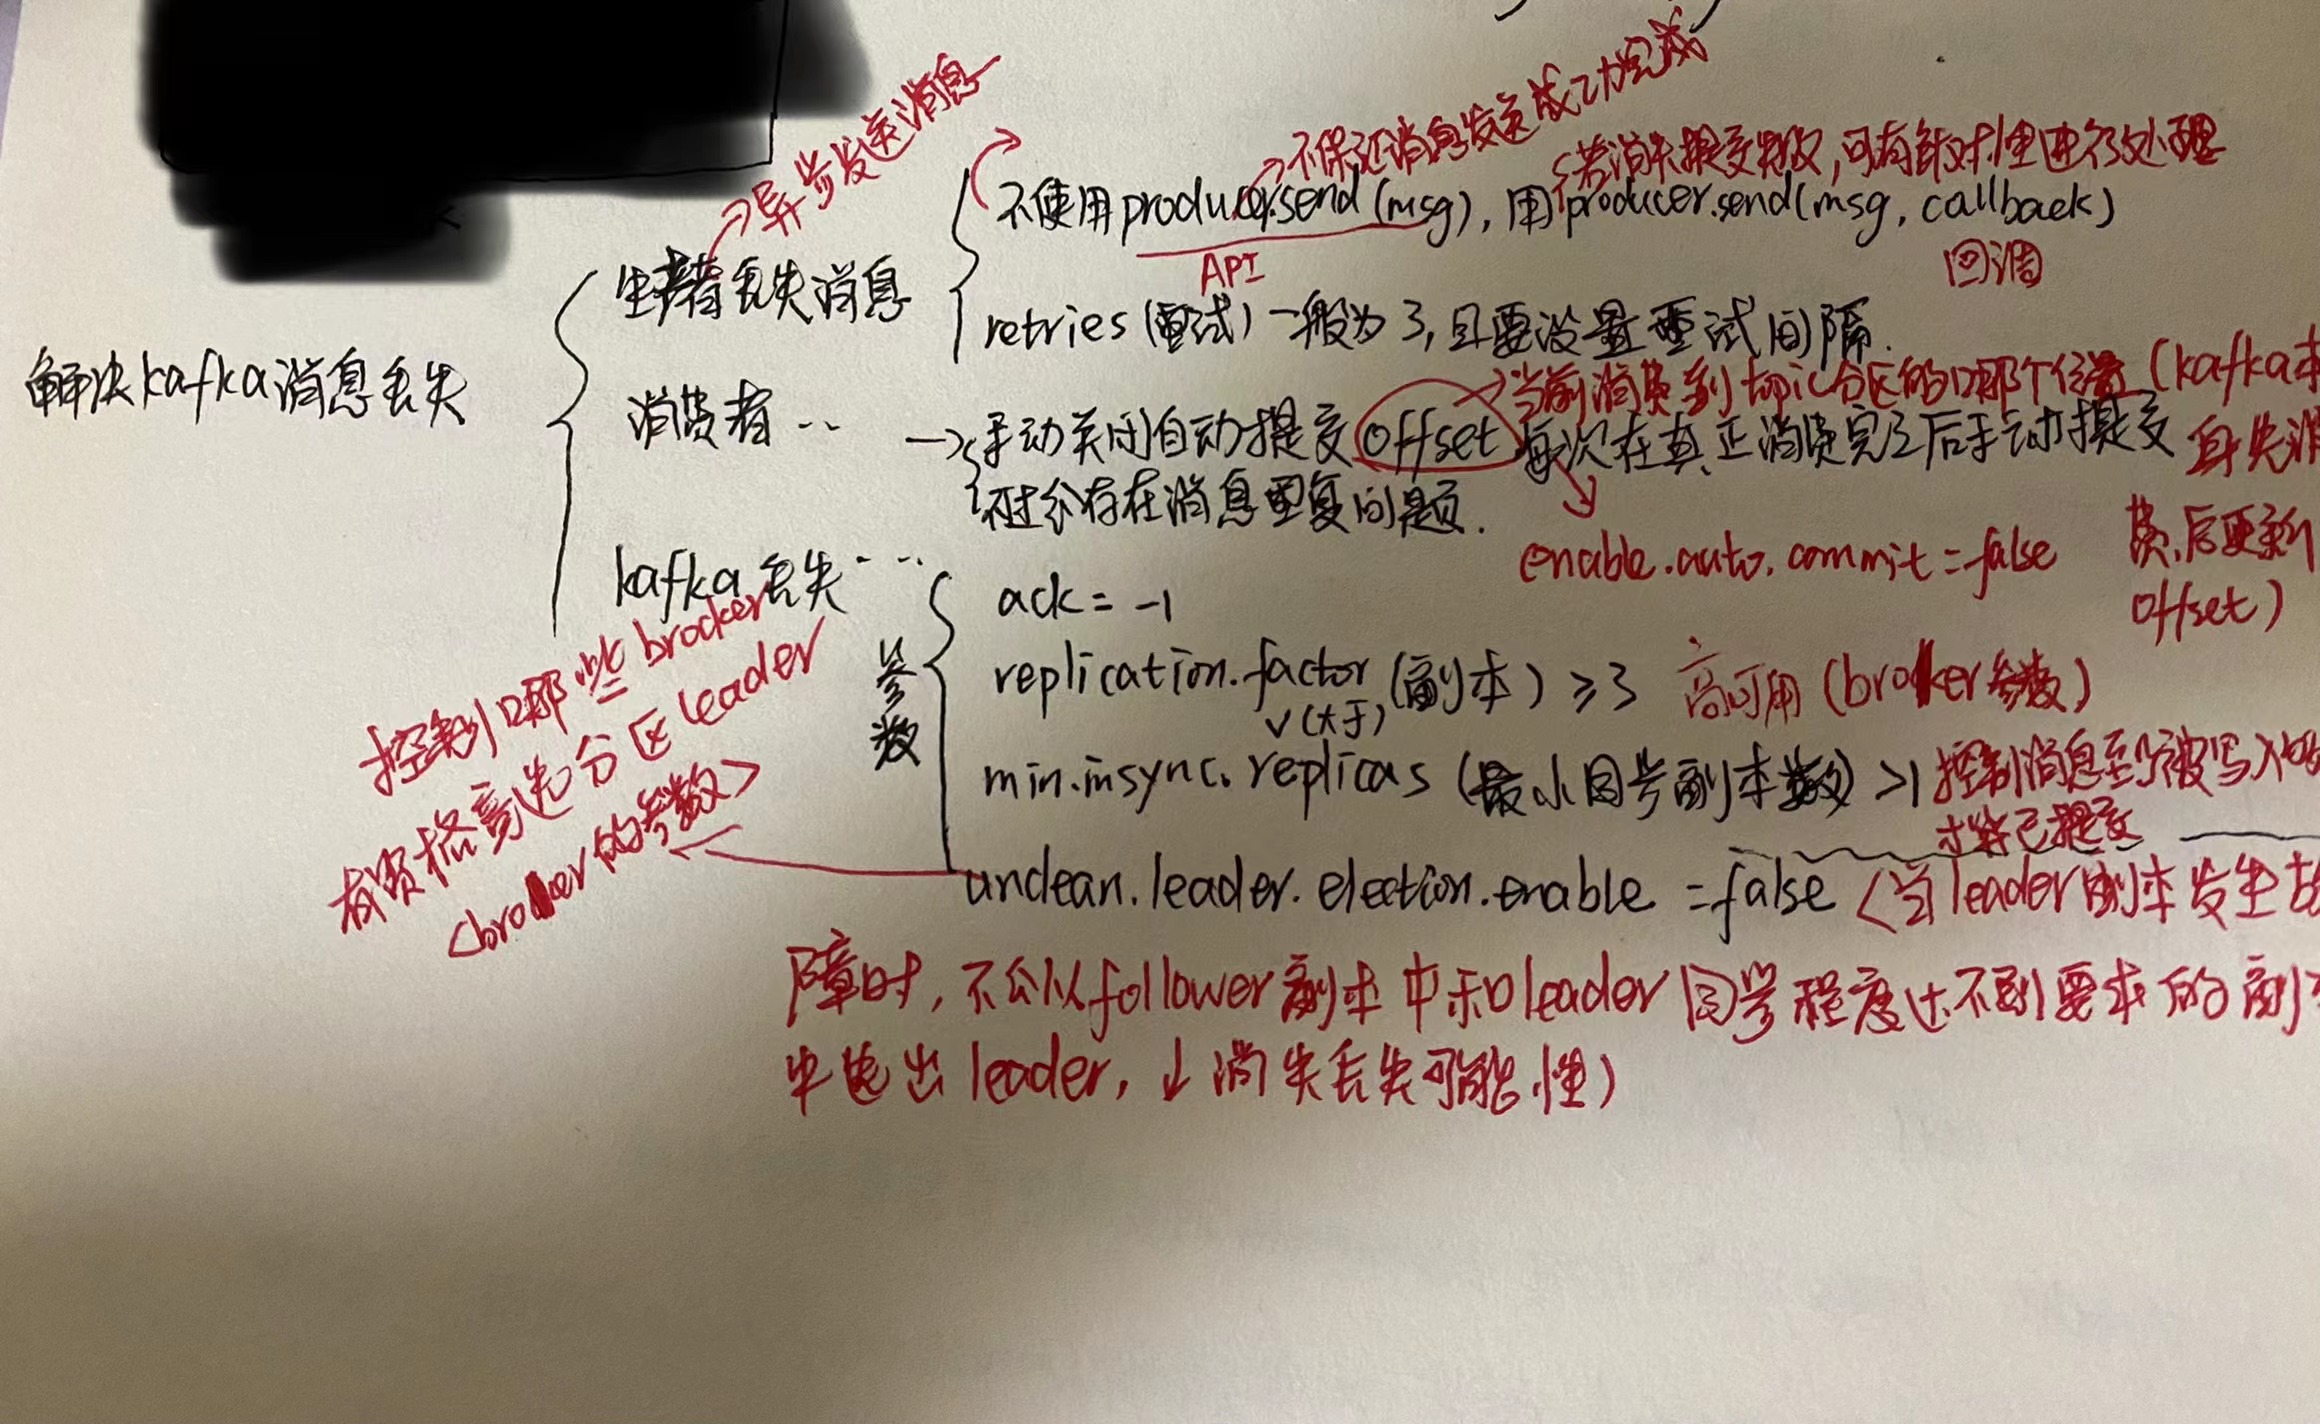 异步发送消息
不保证消息发送成功完成
若消息未提交失败，可有针对性进行处理
不使用producer.send(msg)，用producer.send(msg, callback)
API
回调
生产者丢失消息
retries(重试)一般为3,且要设置重试间隔.
解决kafka消息丢失
当前消费到topic分区的哪个位置(kafka本
消费者‥
手动关闭自动提交offset每次在真正消费完了后手动提交
身先消
不过会存在消息重复问题.
费,后更新
enable.auto.commit=false
offset)
kafka丢失…
ack=-1
参数
replication.factor(副本)≥3 高可用(broker参数)
∨(大于)
min.insync.replicas(最小同步副本数)>1 控制消息至少被写入
才算已提交
控制哪些brocker
有资格竞选分区leader
<broker的参数>
unclean.leader.election.enable=false <当leader副本发生故
障时,不会从follower副本中和leader同步程度达不到要求的副
中选出leader,↓消失丢失可能性)